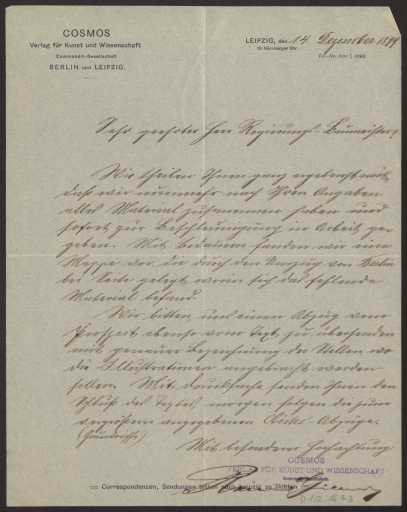 COSMOS
Verlag für Kunst und Wissenschaft
Commandit-Gesellschaft
BERLIN und LEIPZIG.
LEIPZIG, den 14 Dezember 1899
Sehr geehrter Herr Regierungs-Baumeister,
Wir theilen Ihnen ganz ergebenst mit,
daß wir nunmehr nach Ihren Angaben
alles Material zusammen haben und
sofort zur Beschleunigung in Arbeit ge-
geben. Mit Bedauern fanden wir eine
Mappe vor, die durch den Umzug von Berlin
bei Seite gelegt, worin sich das fehlende
Material befand.
Wir bitten uns einen Abzug vom
Prospect ebenso vom Text zu übersenden
mit genauer Bezeichnung der Stellen wo
die Illustrationen angebracht werden
sollen. Mit Drucksache senden Ihnen den
Schluß des Textes, morgen folgen die zum
vergrößern angegebenen Abzüge.
Mit besonderer Hochachtung
COSMOS
VERLAG FÜR KUNST UND WISSENSCHAFT
Correspondenzen, Sendungen bitten nach Leipzig zu richten